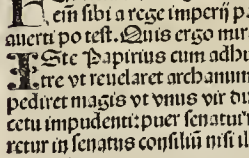 ein sibi a rege imperij p
auerti potest. Quis ergo mir
Iste Papirius cum adhu
tre vt reuelaret archanum
pediret magis vt vnus vir du
cetu impudenti: puer senatur
retur in senatus consiliū nisi il